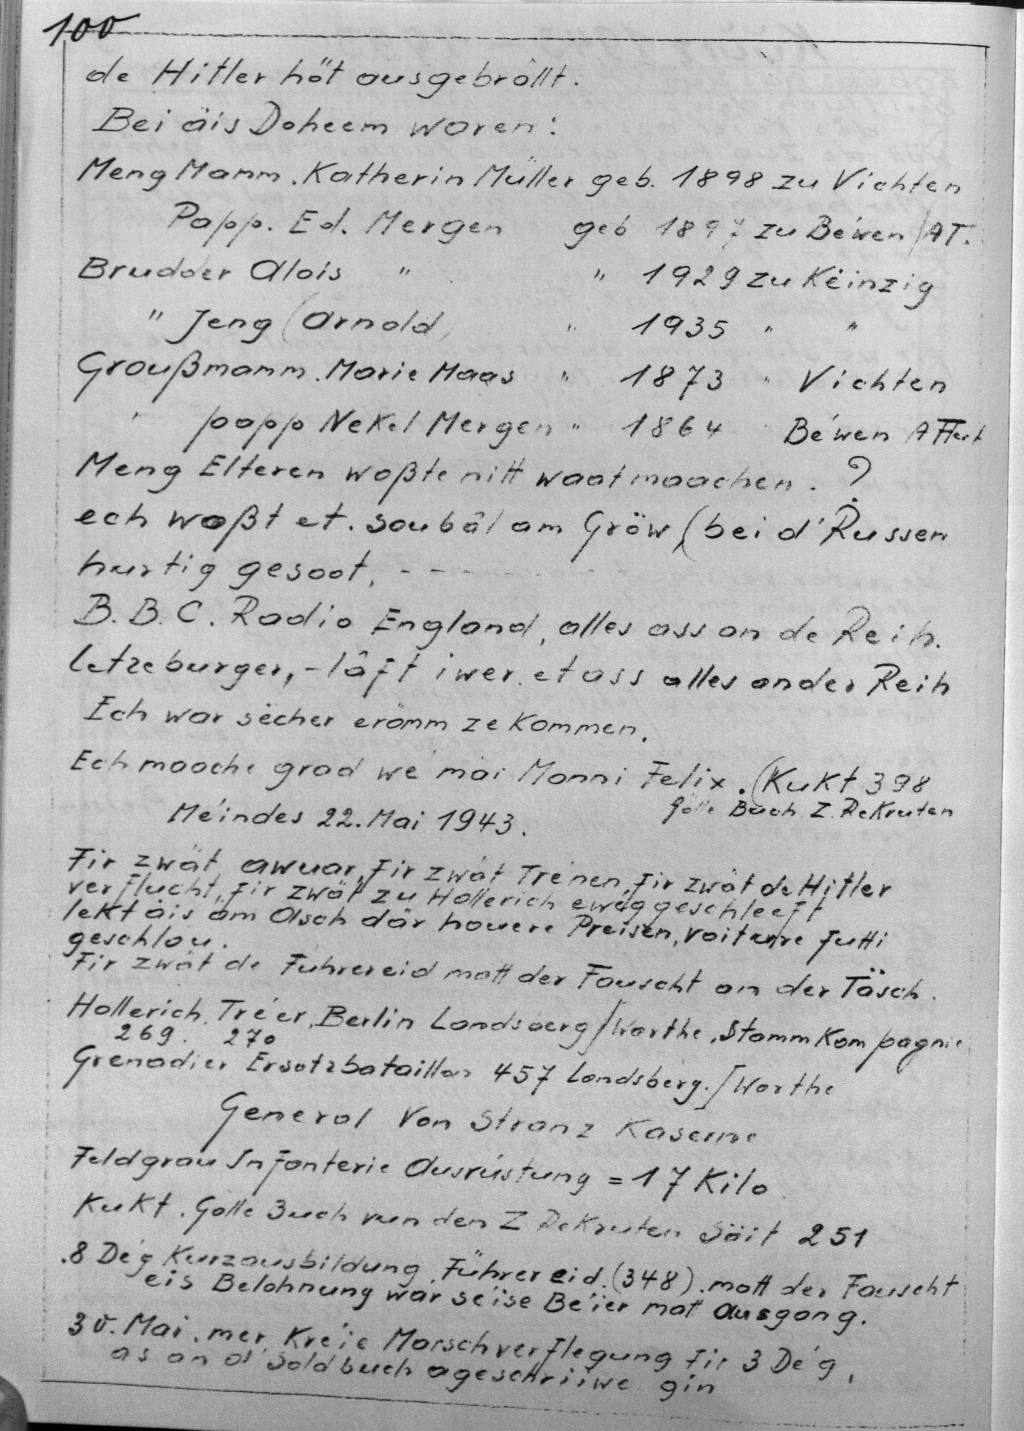 100
de Hitler höt ausgebröllt.
Bei äis Doheem waren:
Meng Mamm. Katherin Müller geb. 1898 zu Vichten
Papp. Ed. Mergen geb 1897 zu Béwen/AT.
Brudder Alois " " 1929 zu Këinzig
" Jeng (Arnold) " 1935 " "
Groußmamm. Marie Maas " 1873 " Vichten
" papp Nekel Mergen " 1864 Béwen Attert
Meng Elteren woßte nitt waat maachen. ?
ech woßt et. soubâl am Gröw (bei d'Russen
hurtig gesoot. - - - - - -
B.B.C. Radio England, alles ass an de Reih.
Letzeburger, - läft iwer. et ass alles an der Reih
Ech war sëcher erömm ze kommen.
Ech maache grad wé mäi Monni Felix. (Kukt 398
Gölle Buch Z. Rekruten
Méindes 22. Mai 1943.
Fir zwät awuar, fir zwät Trénen, fir zwät de Hitler
verflucht, fir zwät zu Hollerich ewäggeschleeft
lekt äis am Asch där houere Preisen, voiture futti
geschlou.
Fir zwät de Führereid matt der Fauscht an der Täsch.
Hollerich, Tréer, Berlin Landsberg/Warthe, Stammkompagnie
269. 270
Grenadier Ersatzbataillon 457 Landsberg./Warthe
General Von Stranz Kaserne
Feldgrau Infanterie Ausrüstung = 17 Kilo
Kukt. Golle Buch vun den Z Rekruten Säit 251
.8 Dég Kurzausbildung. Führereid. (348). matt der Fauscht
eis Belohnung war séise Béier mat Ausgang.
30. Mai. mer Kréie Marschverflegung fir 3 Dég,
as an d'Soldbuch ageschriiwe gin